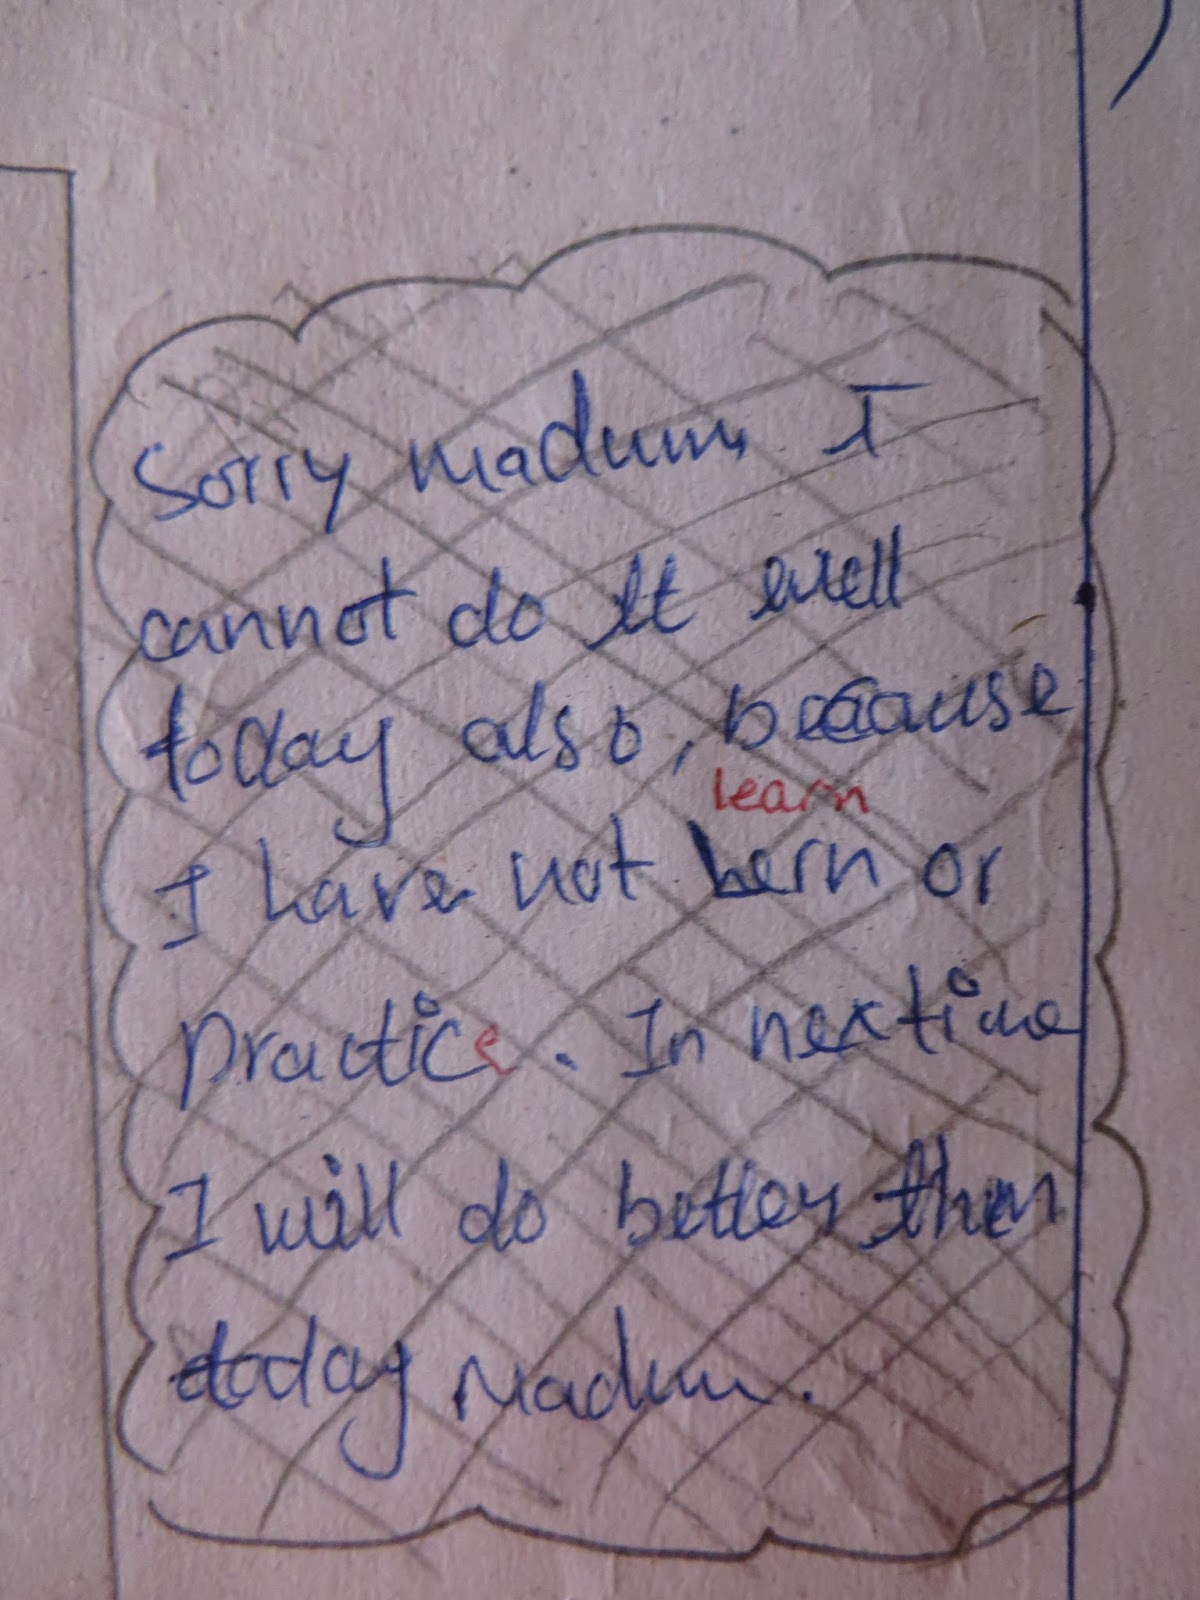 Sorry madum, I
cannot do it well
today also, because
learn
I have not lern or
practice. In nextime
I will do better then
today Madum.